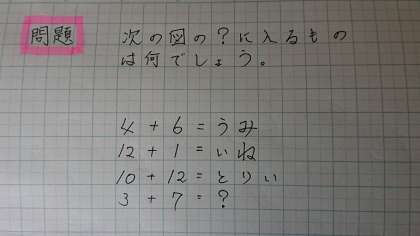 問題 次の図の?に入るもの
は何でしょう。
4 + 6 = うみ
12 + 1 = いね
10 + 12 = とりい
3 + 7 = ?